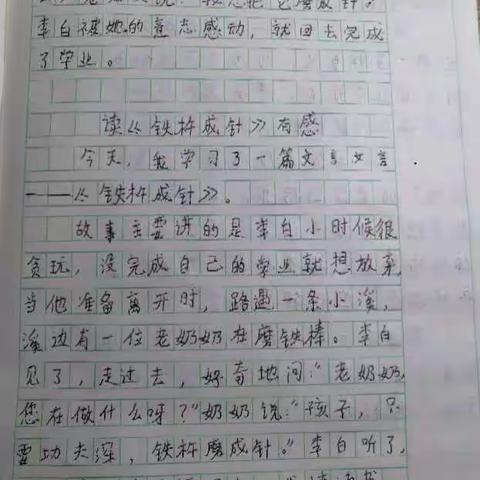 李白被她的意志感动，就回去完成
了学业。
读《铁杵成针》有感
今天，我学习了一篇文言文言
——《铁杵成针》。
故事主要讲的是李白小时候很
贪玩，没完成自己的学业就想放弃，
当他准备离开时，路遇一条小溪，
溪边有一位老奶奶在磨铁棒。李白
见了，走过去，好奇地问："老奶奶，
您在做什么呀？"奶奶说："孩子，只
要功夫深，铁杵磨成针。"李白听了，